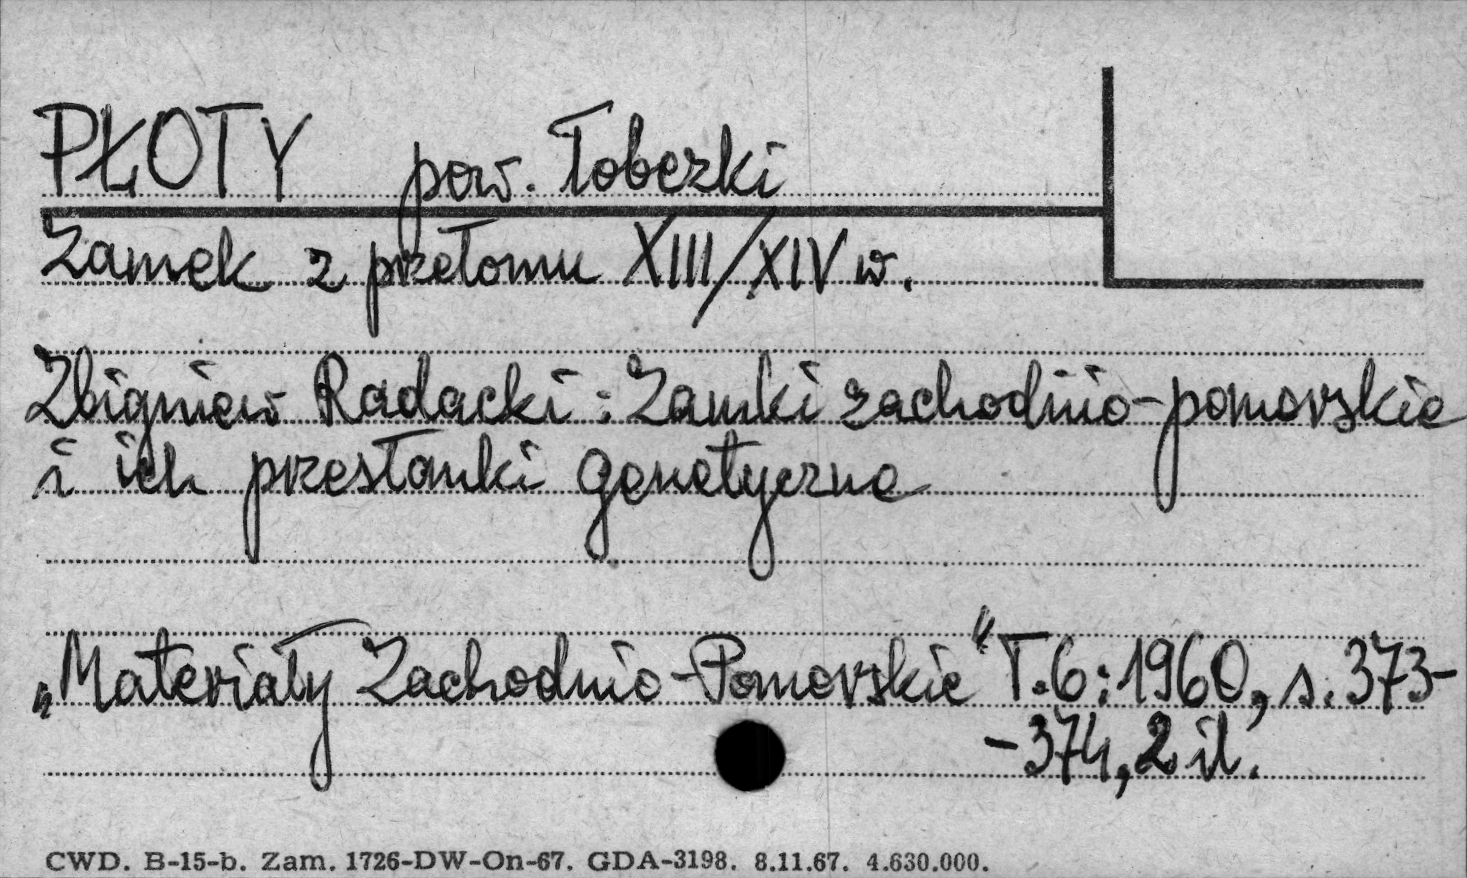 PŁOTY pow. Łobezki
Zamek z przełomu XIII/XIV w.
Zbigniew Radacki: Zamki zachodnio-pomorskie
i ich przesłanki genetyczne
„Materiały Zachodnio-Pomorskie" T.6:1960, s. 373-
-374, 2 il.
CWD. B-15-b. Zam. 1726-DW-On-67. GDA-3198. 8.11.67. 4.630.000.